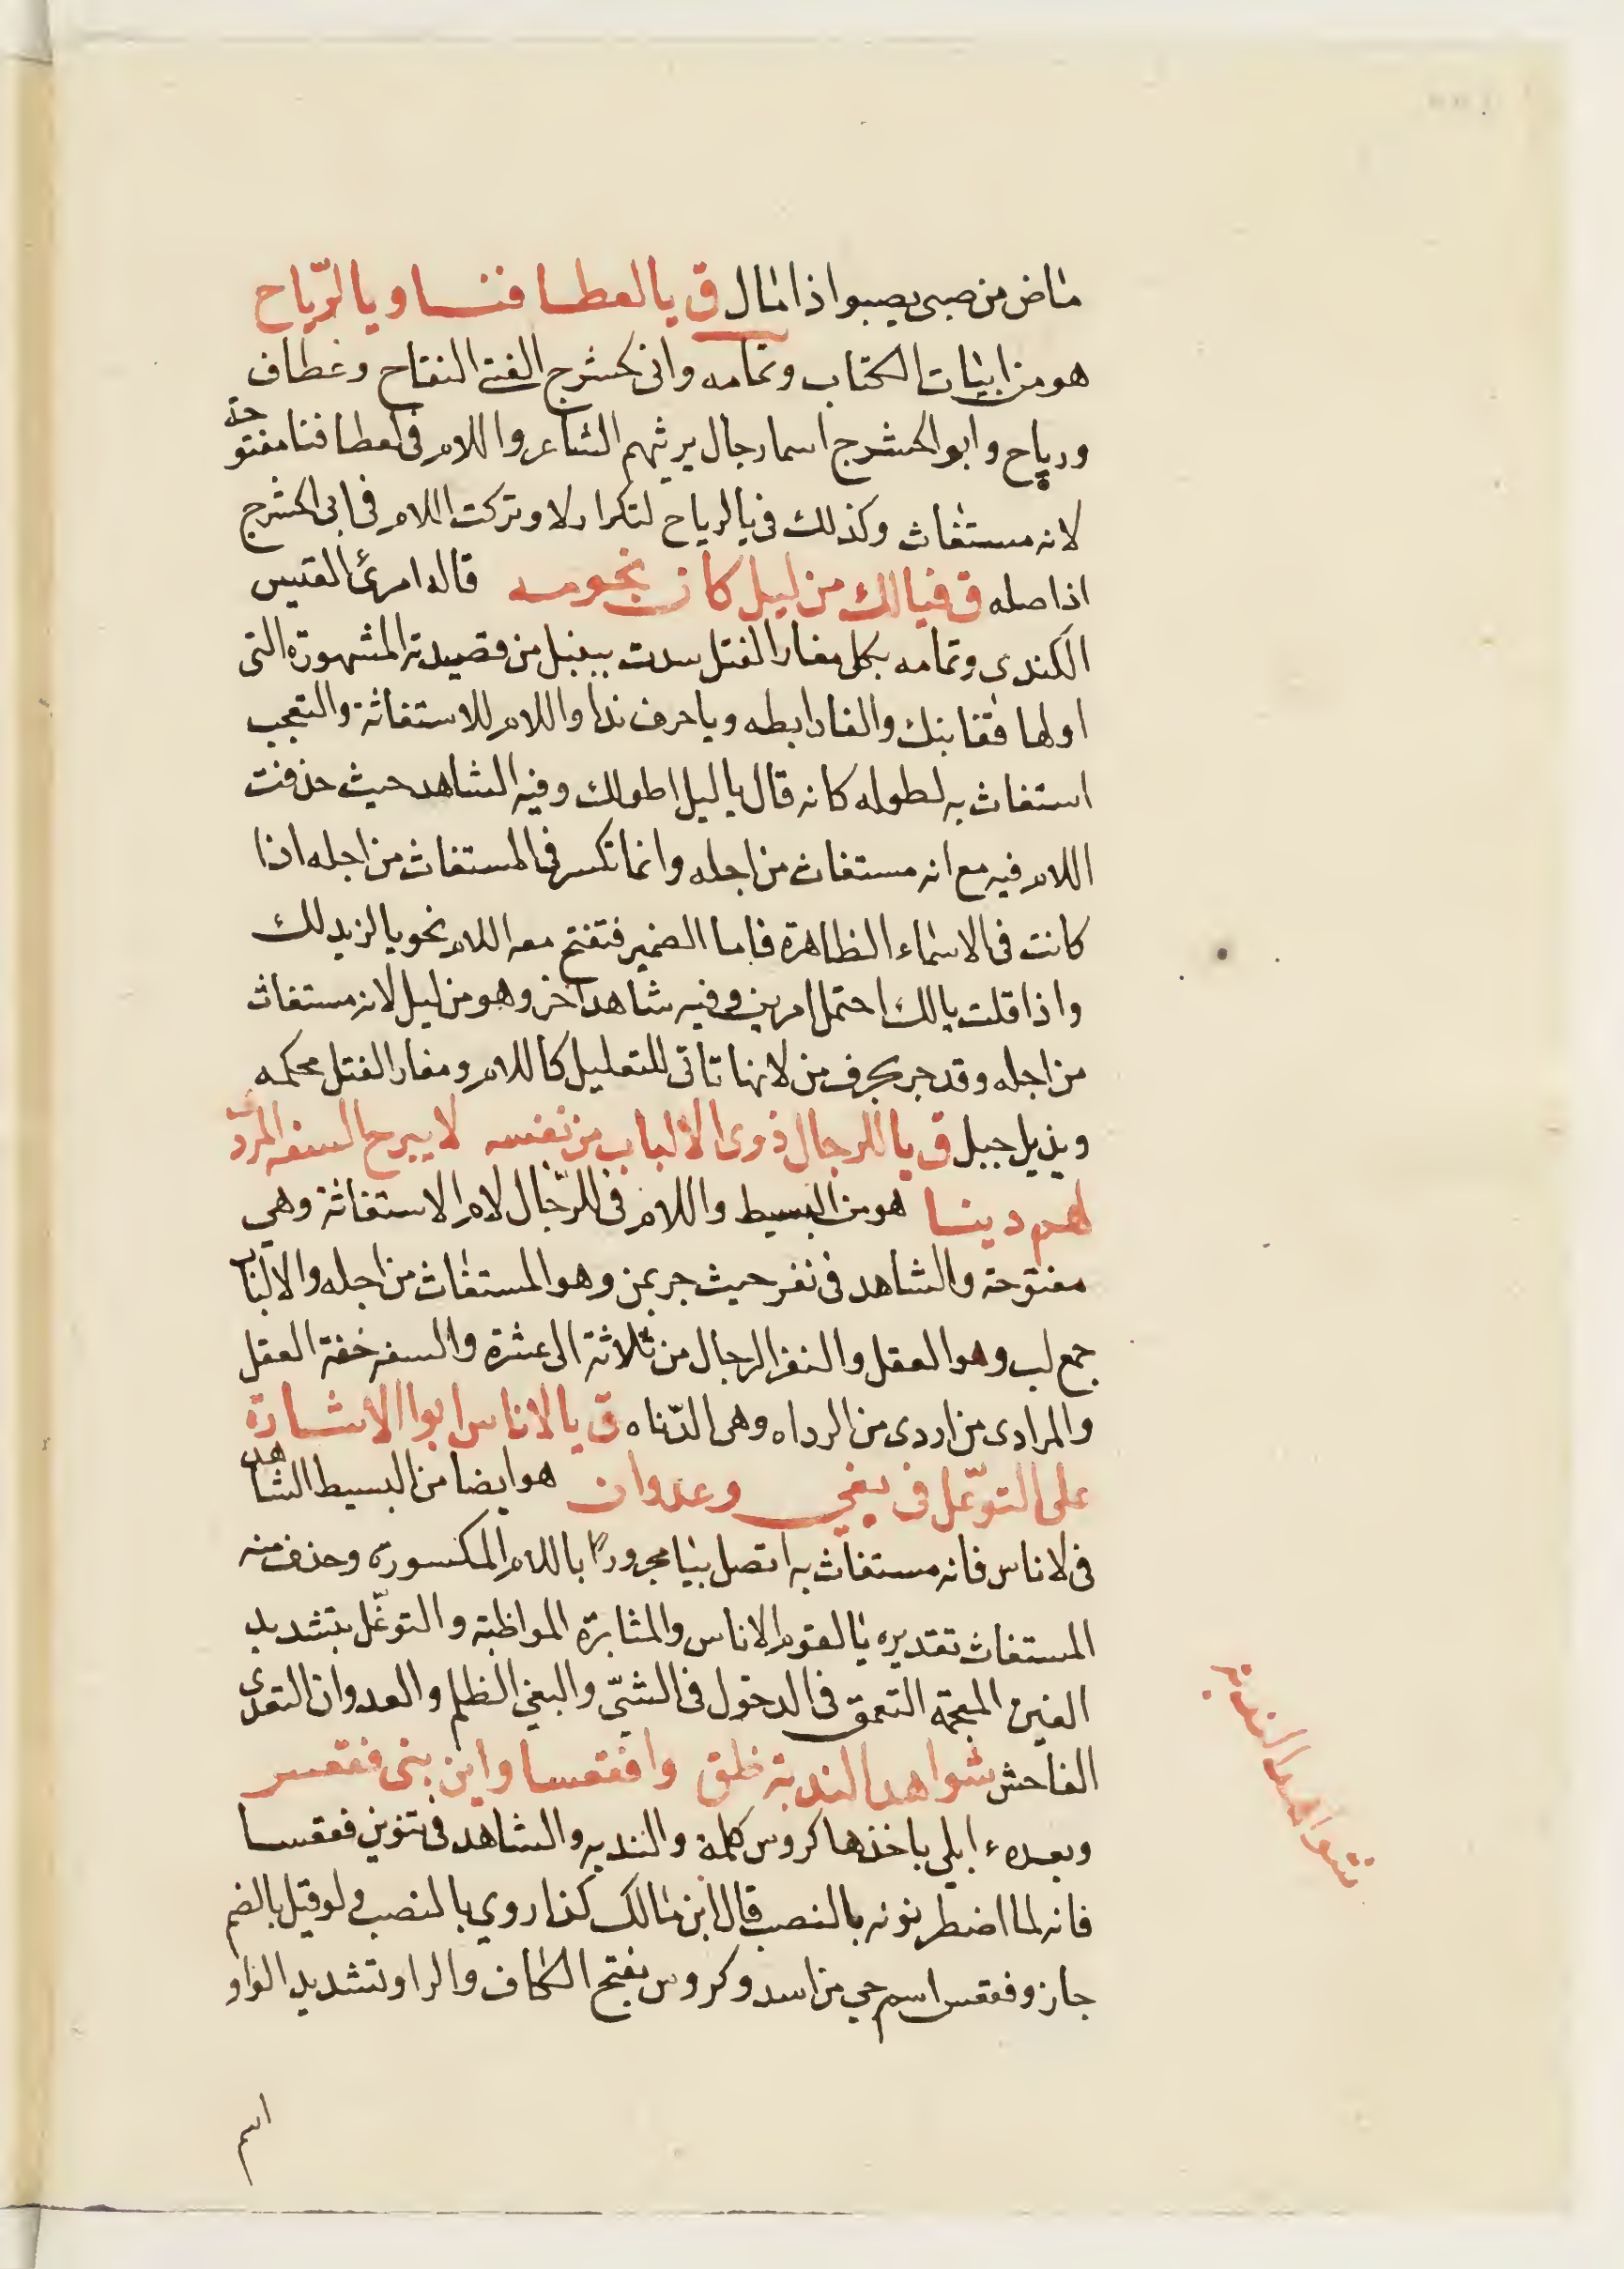 ماض من صبى يصبوا اذا مال ق يا لعطافنا ويا لرّياح
هو من ابيات الكتاب وتمامه وابى كحشرج الفتى النفاح وعطاف
ورياح وابو الحشرج اسما رجال يرثيهم الشاعر واللام فى لعطافنا مفتوحة
لانه مستغاث وكذلك فى يا لرياح لتكرار لا وتركت اللام فى ابى الحشرج
اذ اصله ق فيا لك من ليل كان نجومه قاله امرئ القيس
الكندى وتمامه بكل مغار الفتل شدت بيذبل من قصيدته المشهورة التى
اولها قفا نبك والفا رابطه ويا حرف ندا واللام للاستغاثة والتعجب
استغاث به لطوله كانه قال يا ليل اطولك وفيه الشاهد حيث حذفت
اللام فيه مع انه مستغاث من اجله وانما تكسر فى المستغاث من اجله اذا
كانت فى الاسماء الظاهرة فاما الضمير فتفتح معه اللام نحو يا لزيد لك
واذا قلت يا لك احتمل امرين وفيه شاهد اخر وهو من ليل لانه مستغاث
من اجله وقد جر بحرف من لانها تاتى للتعليل كاللام ومغار الفتل محكمه
ويذبل جبل ق يا للرجال ذوى الالباب من نفسه لا يبرح السفه المردى
لهم دينا هو من البسيط واللام فى للرّجال لام الاستغاثة وهي
مفتوحة والشاهد فى نفر حيث جر بمن وهو المستغاث من اجله والالباب
جمع لب وهو العقل والنفر الرجال من ثلاثة الى عشرة والسفه خفة العقل
والمرادى من اردى من الرداه وهى الدّناه ق يا لاناس ابوا الا مثابرة
على التوغّل فى بغي وعدوان هو ايضا من البسيط الشاهد
فى لاناس فانه مستغاث به اتصل بيا مجرورًا باللام المكسورة وحذف منه
المستغاث تقديره يا لقوم لاناس والمثابرة المواظبة والتوغّل بتشديد
الغين المعجمة التعمق فى الدخول فى الشئ والبغي الظلم والعدوان التعدى
الفاحش شواهد الندبة ظلق وا فقعسا واين بنى فقعس
وبعده ء ابلي ياخذها كروس كلمة والندبه والشاهد فى تنوين فقعسا
فانه لما اضطر نونه بالنصب قال ابن مالك كذا روي بالنصب ولو قيل بالضم
جاز وفقعس اسم حي من اسد وكروس بفتح الكاف والرا وتشديد الواو
اسم
شواهد الندبة